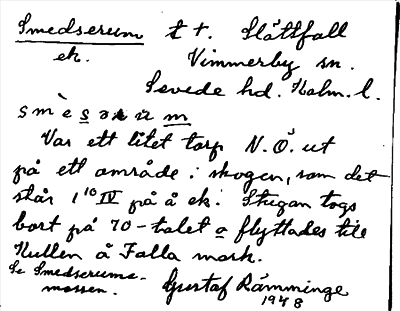 Smedserum t t. Slättfall
ek. Vimmerby sn.
Sevede hd. Kalm. l.
Var ett litet torp N.Ö. ut
på ett område i skogen, som det
står 1 10 IV på å ek. Stugan togs
bort på 70-talet o flyttades till
Kullen å Falla mark.
Se Smedserums-
mossen. Gustaf Rämminge
1948